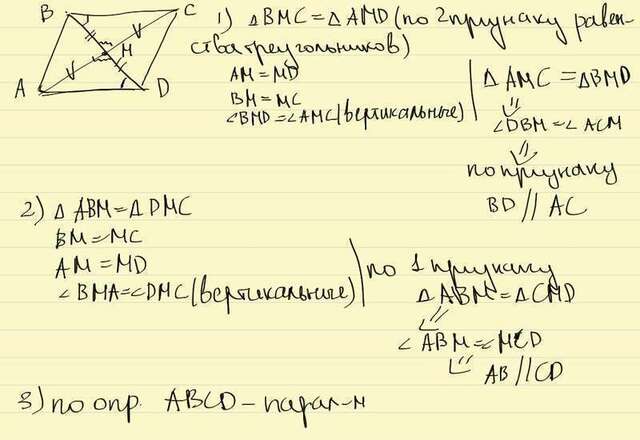 B
C
M
A
D
1) △BMC = △AMD (по 2 признаку равен-
ства треугольников)
AM = MD
BM = MC
∠BMD = ∠AMC (вертикальные)
△AMC = △BMD
⇓
∠DBM = ∠ACM
⇓
по признаку
BD // AC
2) △ABM = △DMC
BM = MC
AM = MD
∠BMA = ∠DMC (вертикальные)
по 1 признаку
△ABM = △CMD
⇓
∠ABM = ∠MCD
⇓ AB // CD
3) по опр. ABCD – парал-м